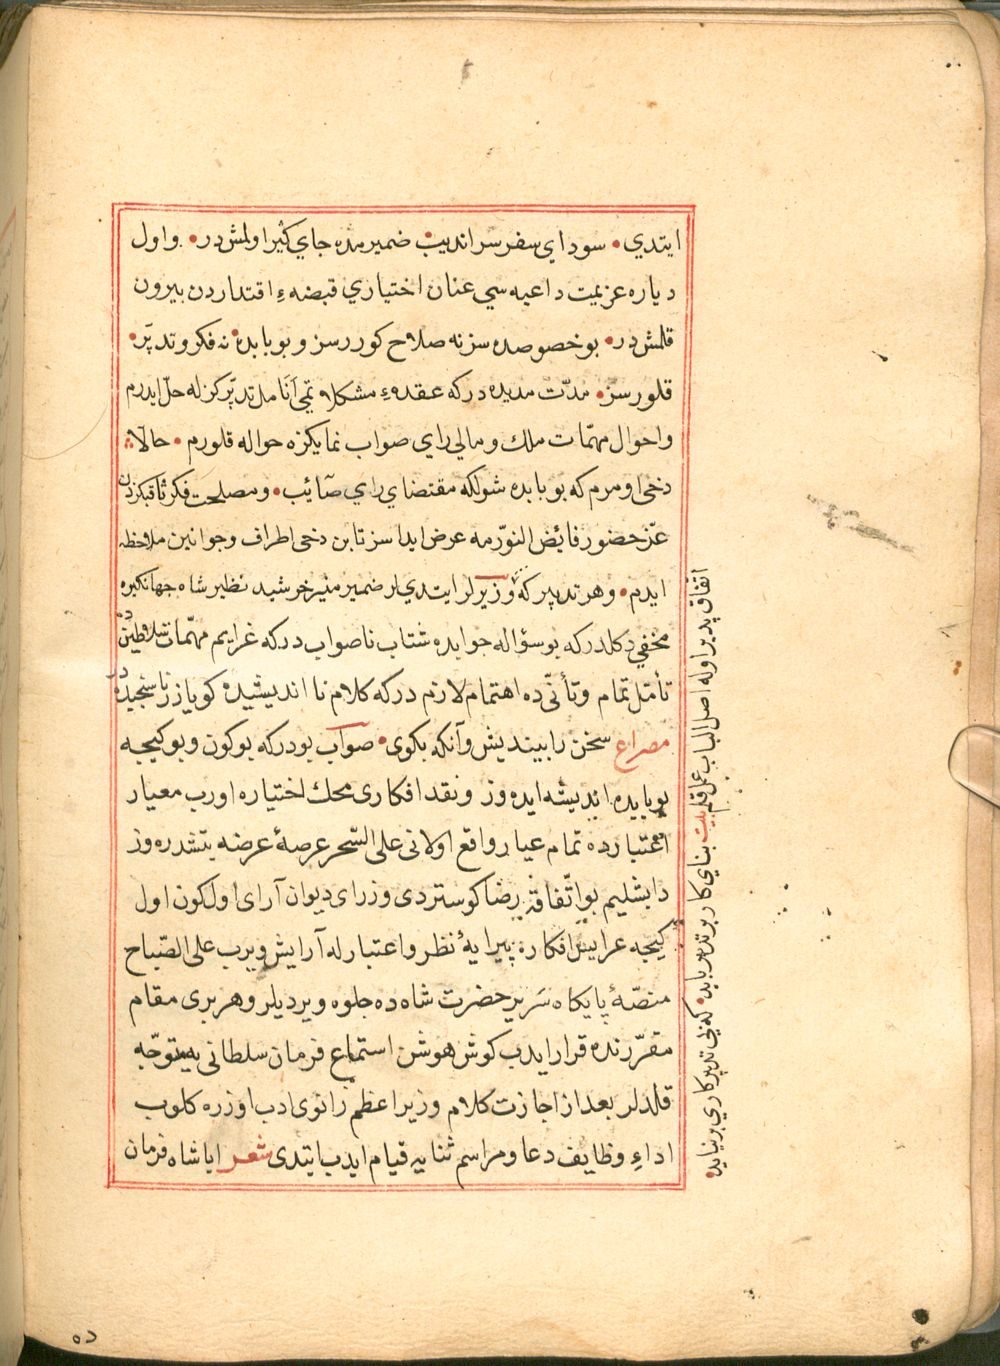 ايتدي • سوداي سفر سرانديب ضميرمده جاي كثير اولمشدر • و اول
دياره عزيمت داعيه سي عنان اختياري قبضهء اقتداردن بيرون
قلمشدر • بو خصوصده سز نه صلاح كوررسز و بو بابده نه فكر و تدبّر •
قلورسز • مدّت مديده در كه عقدهء مشكلاتمي انامل تدبّركزله حلّ ايدرم
و احوال مهمّات ملك و مالي راي صواب نمايكزه حواله قلورم • حالا
دخي اومرم كه بو بابده شولكه مقتضاي راي صآئب • و مصلحت فكر ثاقبكزدن
عزّ حضور فائض النوّرمه عرض ايداسز تا بن دخي اطراف و جوانبن ملاحظه
ايدم • و هر تدبير كه وزيرلر ايتدي لر ضمير منير خرشيد نظير شاه جهانكيره
مخفي دكلدر كه بو سؤاله جوابده شتاب ناصواب در كه غرايم مهمّات سلاطين ده
تأمّل تمام و تأنّى ده اهتمام لازم در كه كلام نا انديشيده كويا زر ناسنجيده در
مصراع سخن را بينديش و آنكه بكوى • صواب بودر كه بو كون و بو كيجه
بو بابده انديشه ايده وز و نقد افكارى محك اختياره اورب معيار
اعتبارده تمام عيار واقع اولانى على السّحر عرصهٔ عرضه يتشدره وز
دابشليم بو اتّفاقه رضا كوستردى وزراى ديوان آراى اول كون اول
كيجه عرايس افكاره پيرايهٔ نظر و اعتبارله آرايش ويرب على الصّباح
منصّهٔ پايكاه سَرير حضرت شاه ده جلوه ويرديلر و هر برى مقام
مقرّرنده قرار ايدب كوش هوشن استماع فرمان سلطانى يه متوجّه
قلدلر بعد از اجازت كلام وزير اعظم زانوى ادب اوزره كلوب
اداءِ وظايف دعا و مراسم ثنايه قيام ايدب ايتدى شعر ايا شاه فرمان
اتفاق پذير اوله اصل الباب عمل قلم بيت بناي كار بر تدبير بايد • كه بى تدبير كاري بر نيايد •
ده